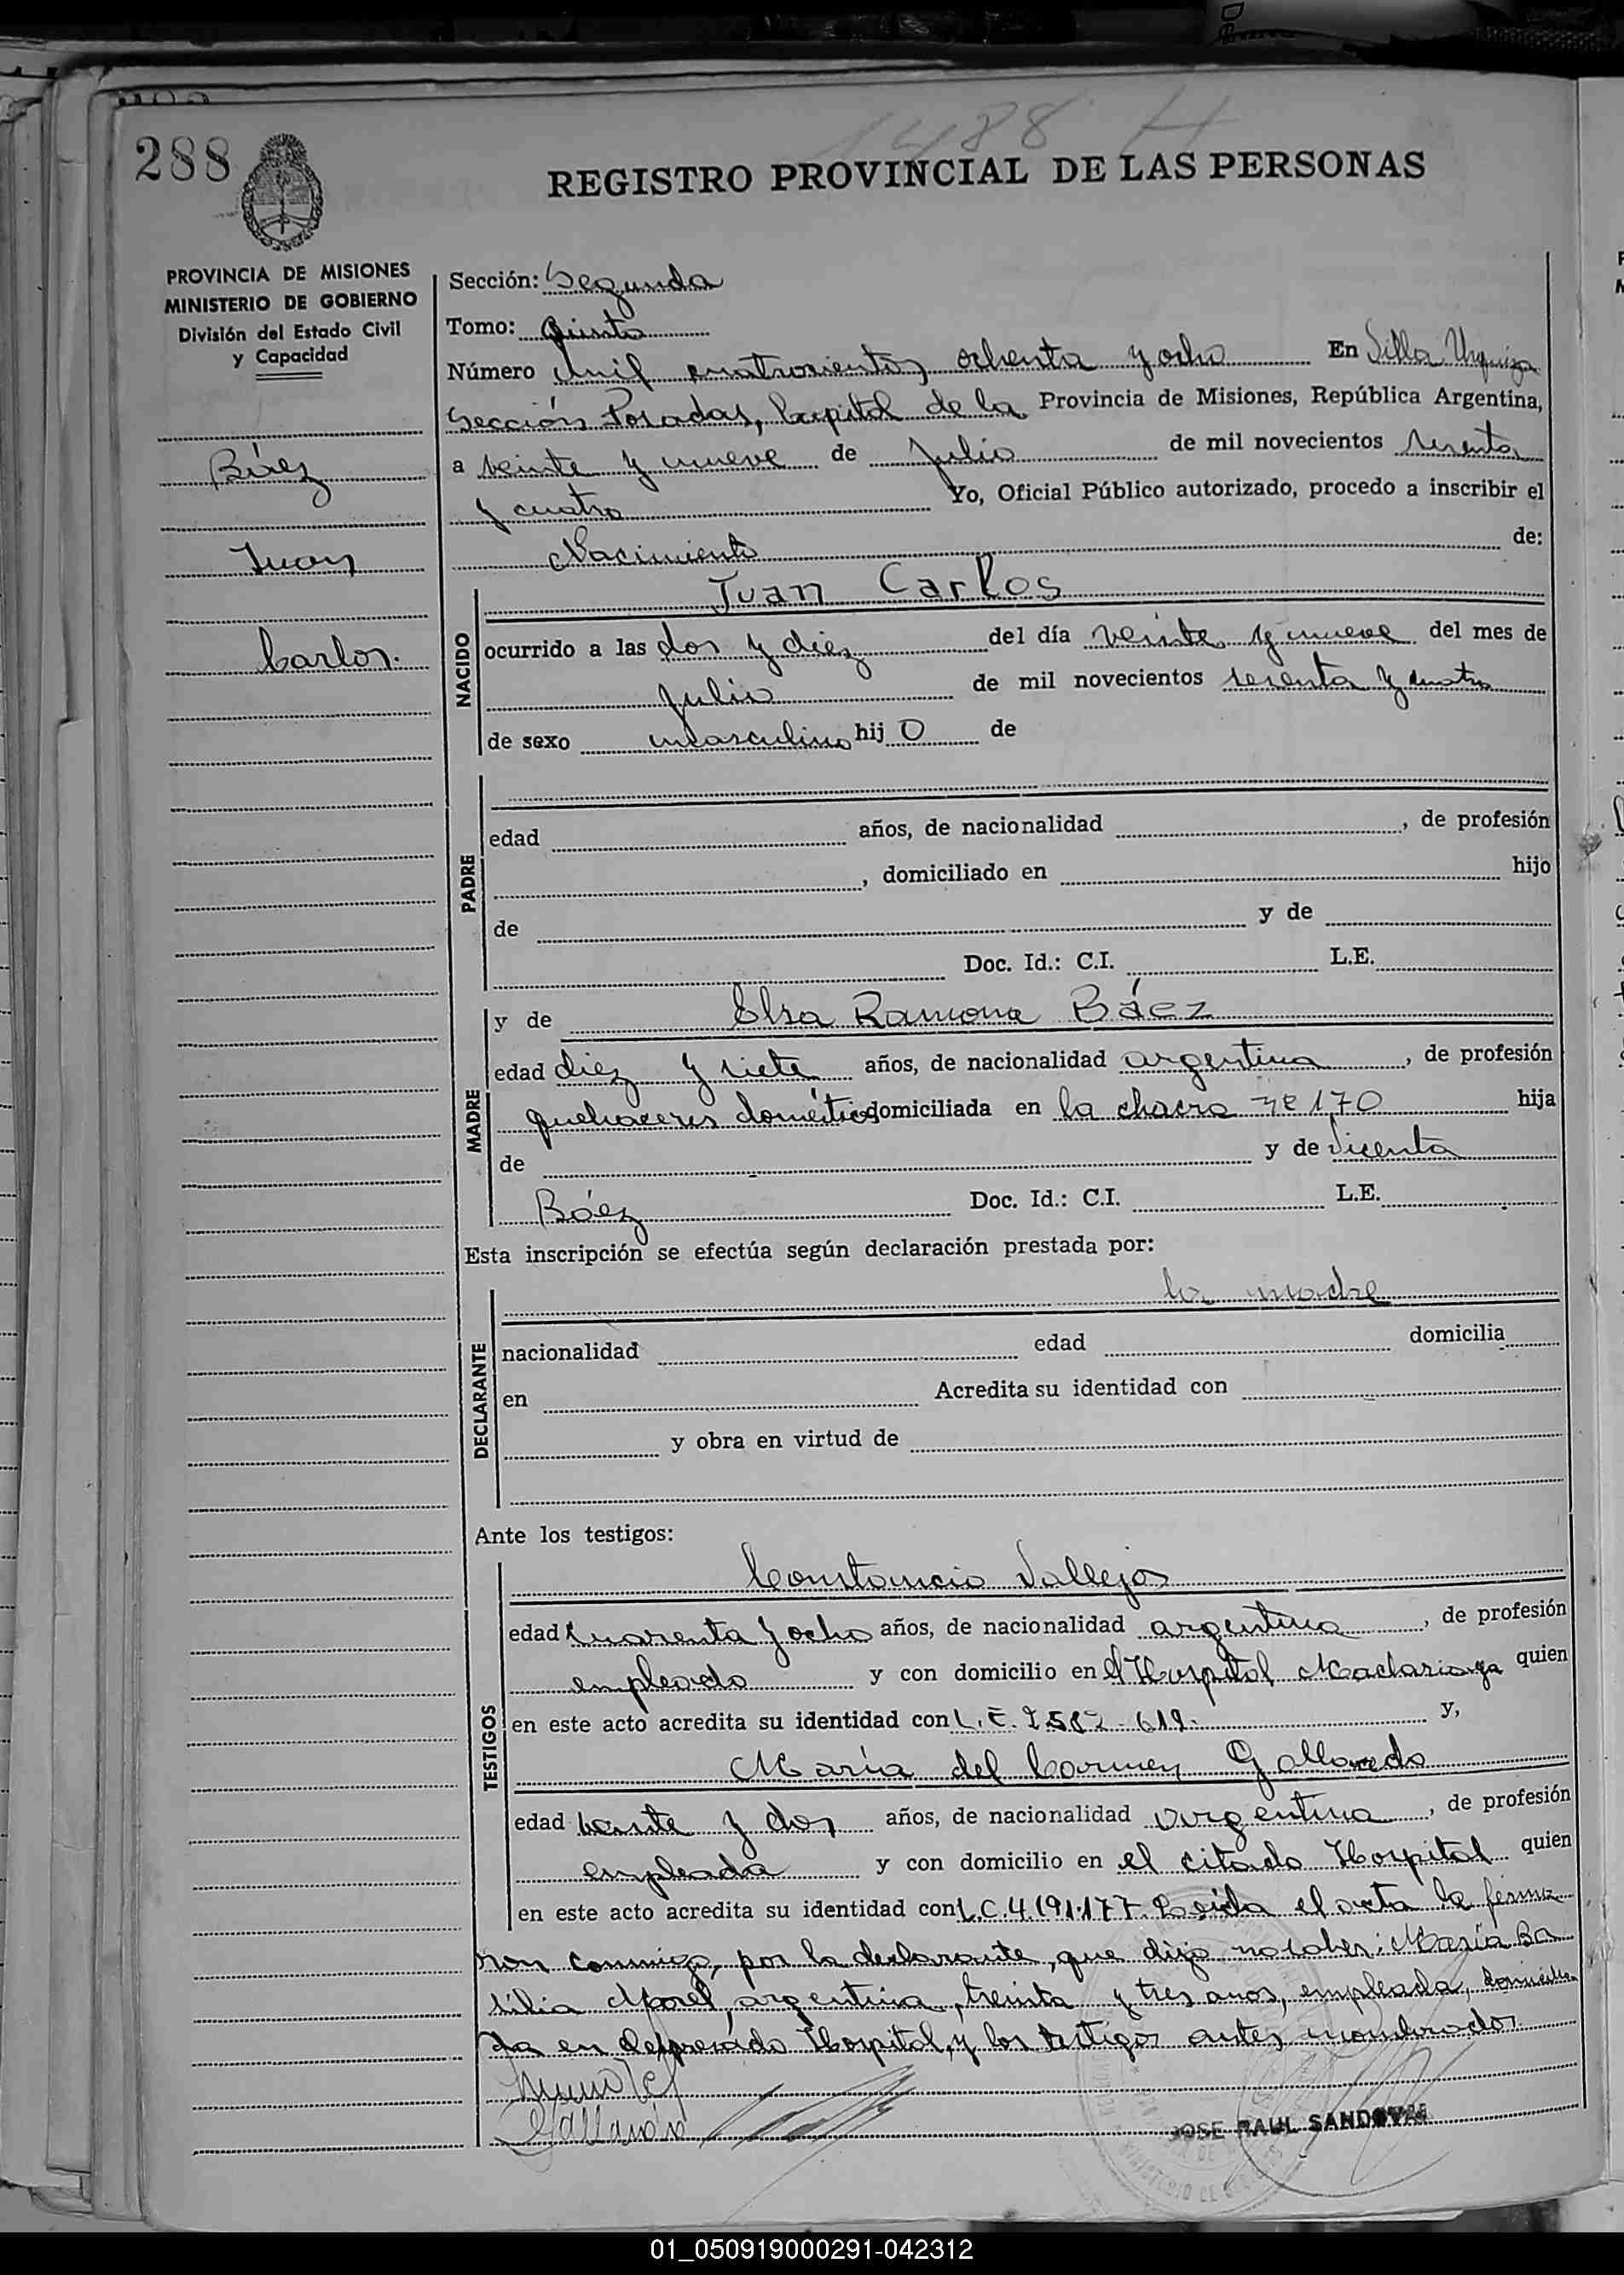 1488 H
288
REGISTRO PROVINCIAL DE LAS PERSONAS
PROVINCIA DE MISIONES
MINISTERIO DE GOBIERNO
División del Estado Civil
y Capacidad
Báez
Juan
Carlos.
Sección: Segunda
Tomo: Quinto
Número Mil cuatrocientos ochenta y ocho En Villa Urquiza
Sección Posadas, Capital de la Provincia de Misiones, República Argentina,
a veinte y nueve de Julio de mil novecientos sesenta
y cuatro Yo, Oficial Público autorizado, procedo a inscribir el
Nacimiento de:
NACIDO
Juan Carlos
ocurrido a las dos y diez del día veinte y nueve del mes de
Julio de mil novecientos sesenta y cuatro
de sexo masculino hij o de
PADRE
edad años, de nacionalidad , de profesión
, domiciliado en hijo
de y de
Doc. Id.: C.I. L.E.
MADRE
y de Elsa Ramona Báez
edad diez y siete años, de nacionalidad argentina , de profesión
quehaceres domésticos domiciliada en la chacra Nº 170 hija
de y de Vicenta
Báez Doc. Id.: C.I. L.E.
Esta inscripción se efectúa según declaración prestada por:
DECLARANTE
la madre
nacionalidad edad domicilia
en Acredita su identidad con
y obra en virtud de
Ante los testigos:
TESTIGOS
Constancio Vallejos
edad cuarenta y ocho años, de nacionalidad argentina , de profesión
empleado y con domicilio en el Hospital Madariaga quien
en este acto acredita su identidad con L.E. 2.582.612. y,
María del Carmen Gallardo
edad veinte y dos años, de nacionalidad argentina , de profesión
empleada y con domicilio en el citado Hospital quien
en este acto acredita su identidad con L.C. 4.191.177. Leída el acta la firma
ron conmigo, por la declarante, que dijo no saber: María Ba
silia Morel, argentina, treinta y tres anos, empleada, domicilia
da en el expresado Hospital, y los testigos antes nombrados
JOSE RAUL SANDOVAL
01_050919000291-042312